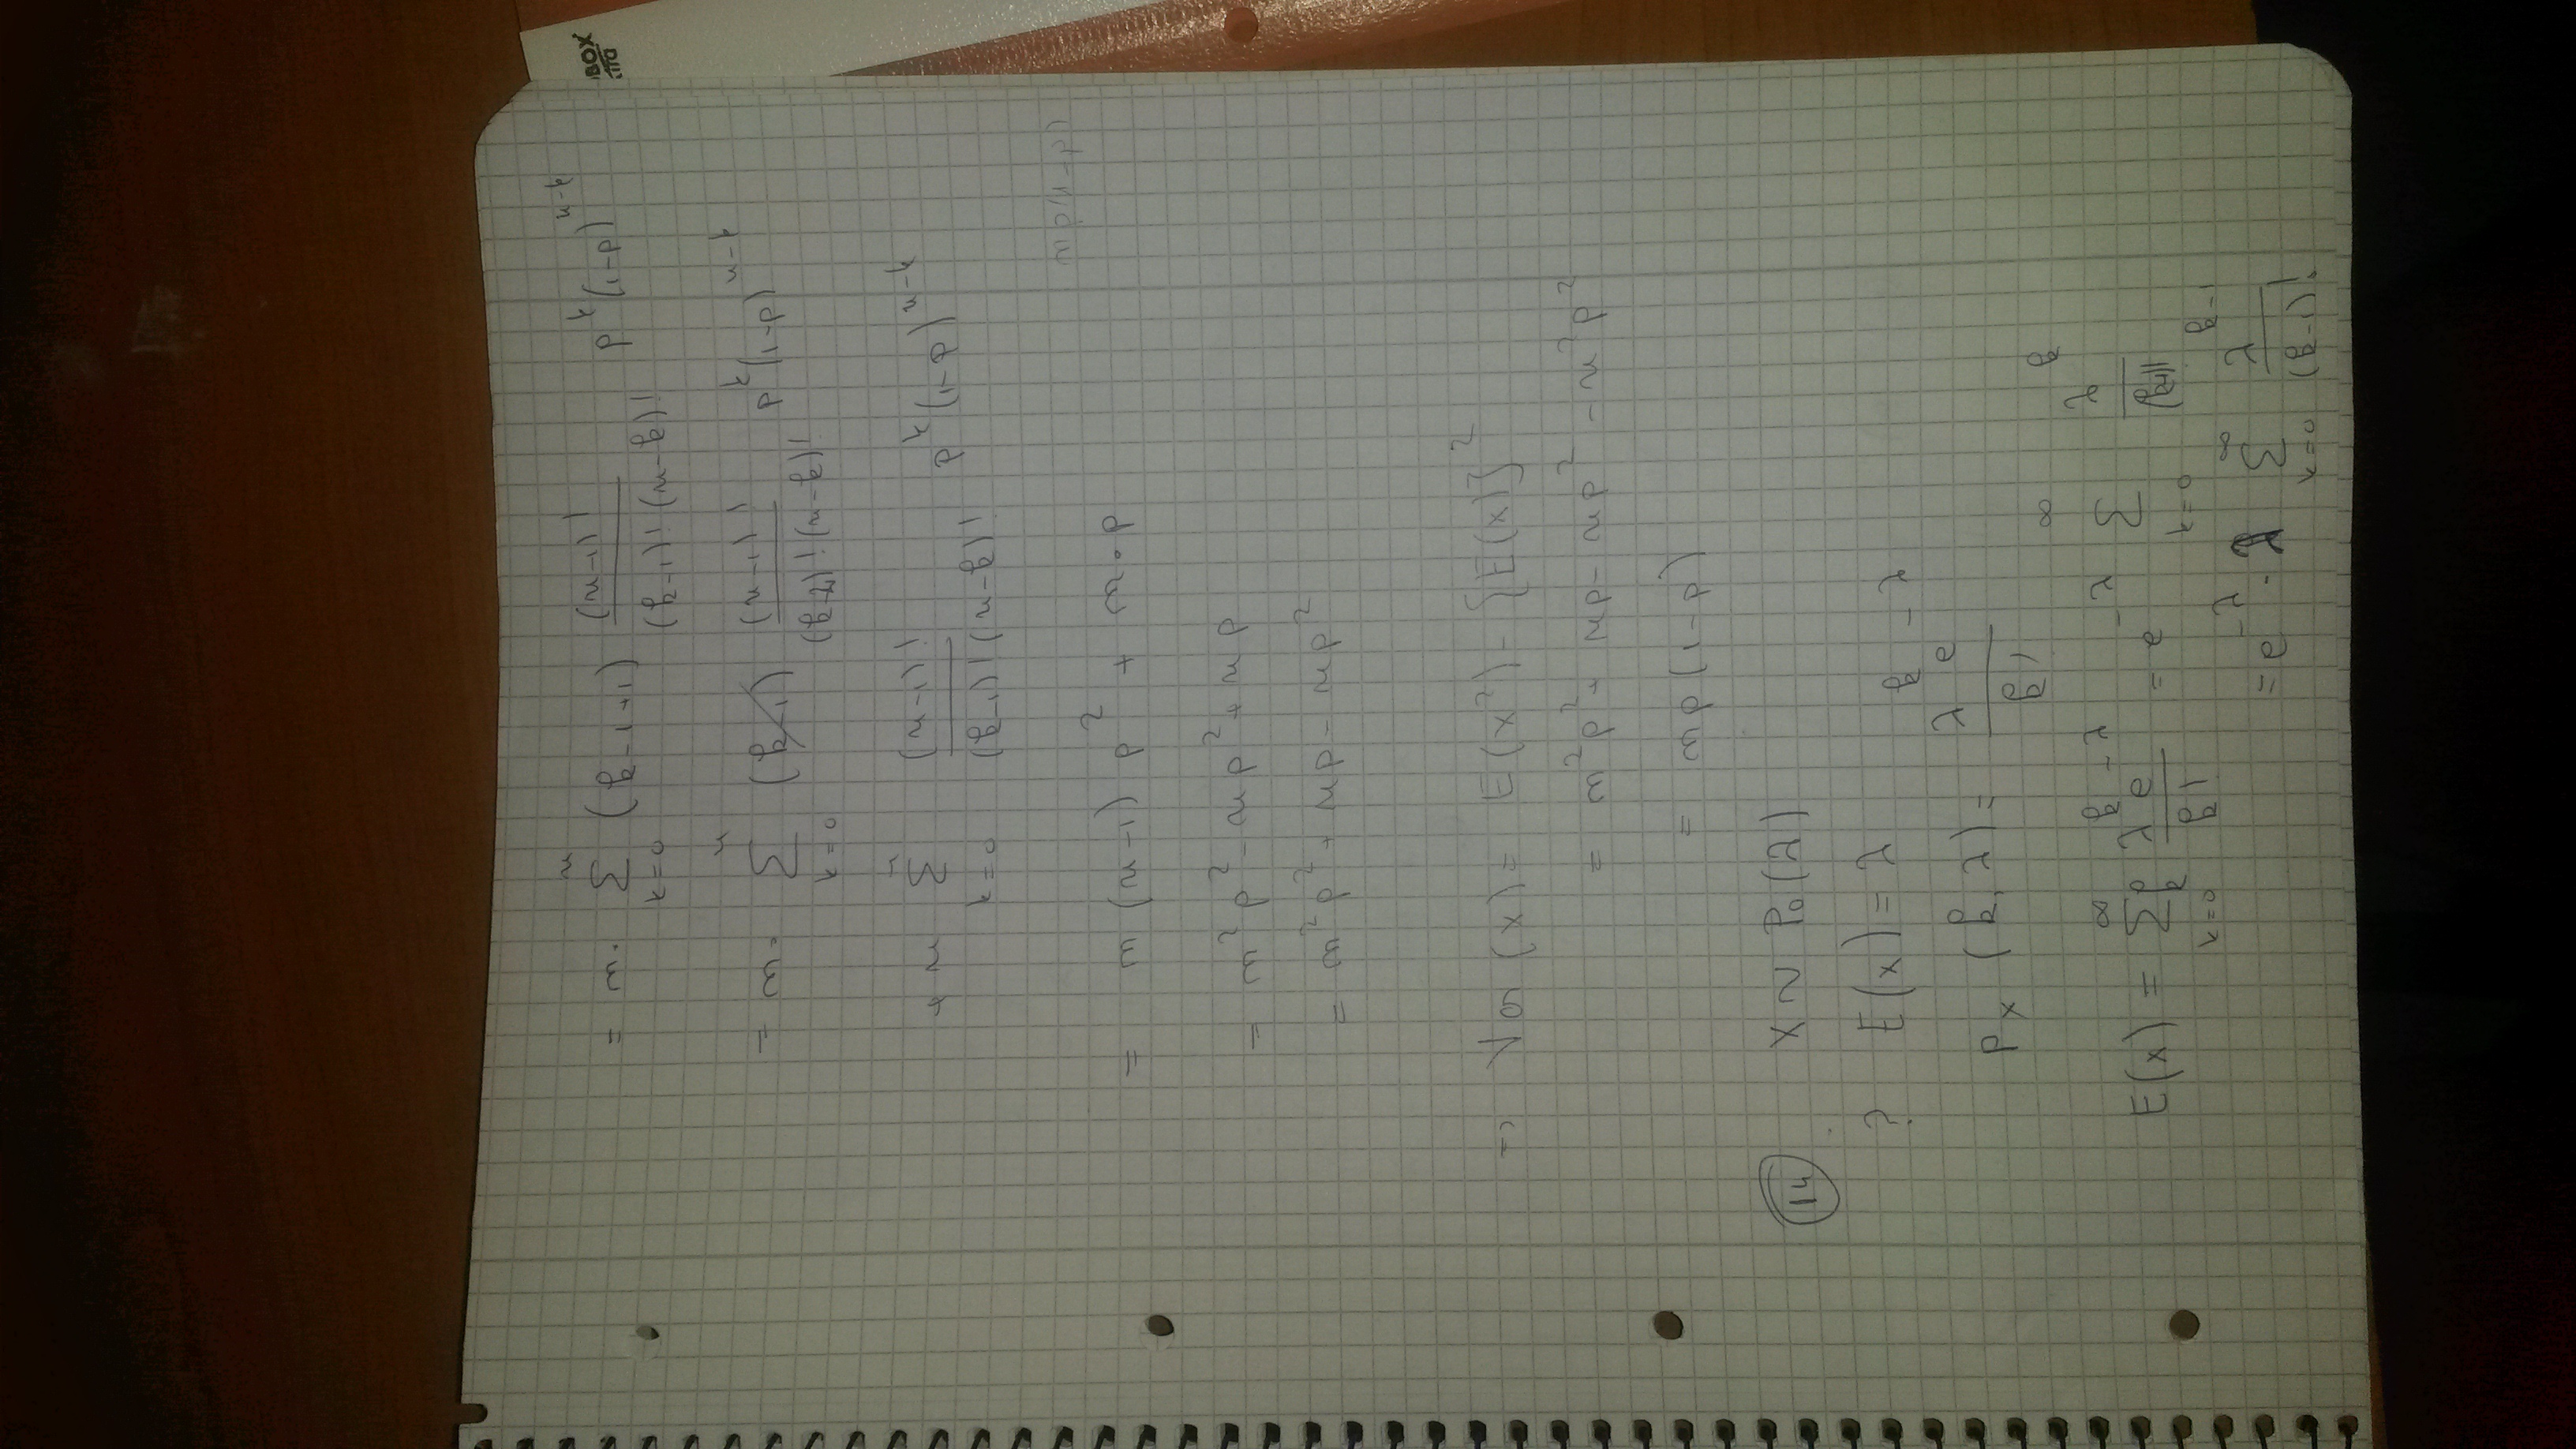 = n · ∑_{k=0}^{n} (k-1+1) \frac{(n-1)!}{(k-1)!(n-k)!} p^k (1-p)^{n-k}
= n · ∑_{k=0}^{n} (k-1) \frac{(n-1)!}{(k-2)!(n-k)!} p^k (1-p)^{n-k}
+ n ∑_{k=0}^{n} \frac{(n-1)!}{(k-1)!(n-k)!} p^k (1-p)^{n-k}
np(1-p)
= n(n-1) p^2 + n·p
= n^2 p^2 - np^2 + np
= n^2 p^2 + np - np^2
=> Var(x) = E(x^2) - {E(x)}^2
= n^2 p^2 + np - np^2 - n^2 p^2
= np(1-p)
14 X ~ Po(λ)
? E(x) = λ
P_x (k, λ) = \frac{λ^k e^{-λ}}{k!}
E(x) = ∑_{k=0}^{∞} k \frac{λ^k e^{-λ}}{k!} = e^{-λ} ∑_{k=0}^{∞} \frac{λ^k}{(k-1)!}
= e^{-λ} · λ ∑_{k=0}^{∞} \frac{λ^{k-1}}{(k-1)!}